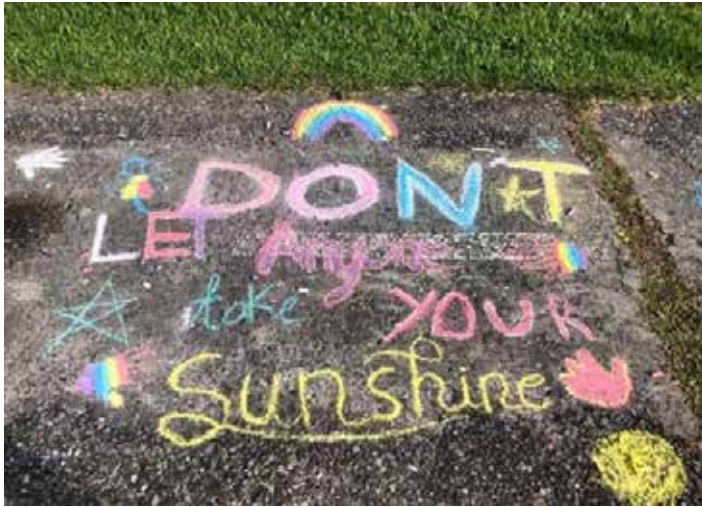 DON'T
LET Anyone
take YOUR
Sunshine